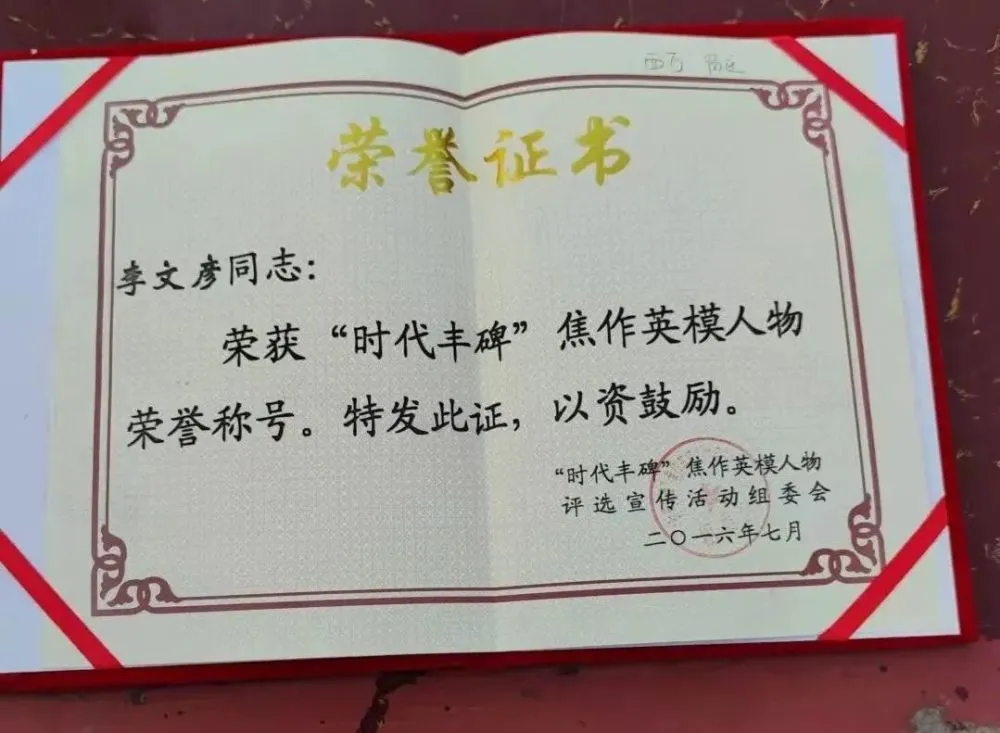 荣誉证书
李文彦同志：
荣获“时代丰碑”焦作英模人物
荣誉称号。特发此证，以资鼓励。
“时代丰碑”焦作英模人物
评选宣传活动组委会
二〇一六年七月